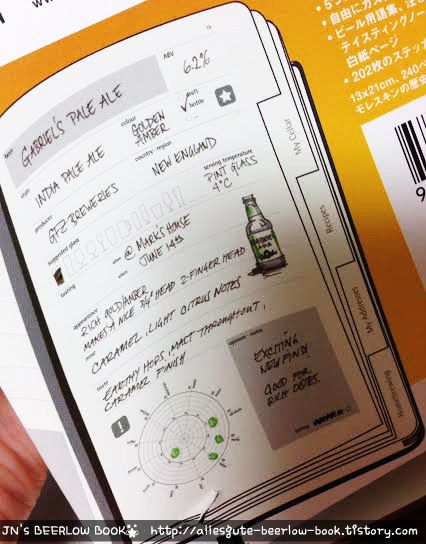 ・自由にカス
・ビール用語集、注
テイスティングノー
白紙ページ
・202枚のステッカ
13x21cm, 240ペ
モレスキンの歴史
9
11
beer
GABRIEL'S PALE ALE
ABV
6.2%
style
INDIA PALE ALE
colour
GOLDEN AMBER
draft
bottle
producer
GFZ BREWERIES
country - region
NEW ENGLAND
suggested glass
serving temperature
PINT GLASS
4°C
tasking
where
@ MARK'S HOUSE
when
JUNE 14TH
appearance
RICH GOLD/AMBER
MAKES A NICE 3/4" HEAD 2-FINGER HEAD
nose
CARAMEL, LIGHT CITRUS NOTES
taste
EARTHY HOPS, MALT THROUGHOUT,
CARAMEL FINISH
opinion - notes
EXCITING
NEW FIND!
GOOD FOR
RICH DISHES.
rating
My Cellar
Recipes
My Addresses
Homebrewing
JN'S BEERLOW BOOK http://allesgute-beerlow-book.tistory.com